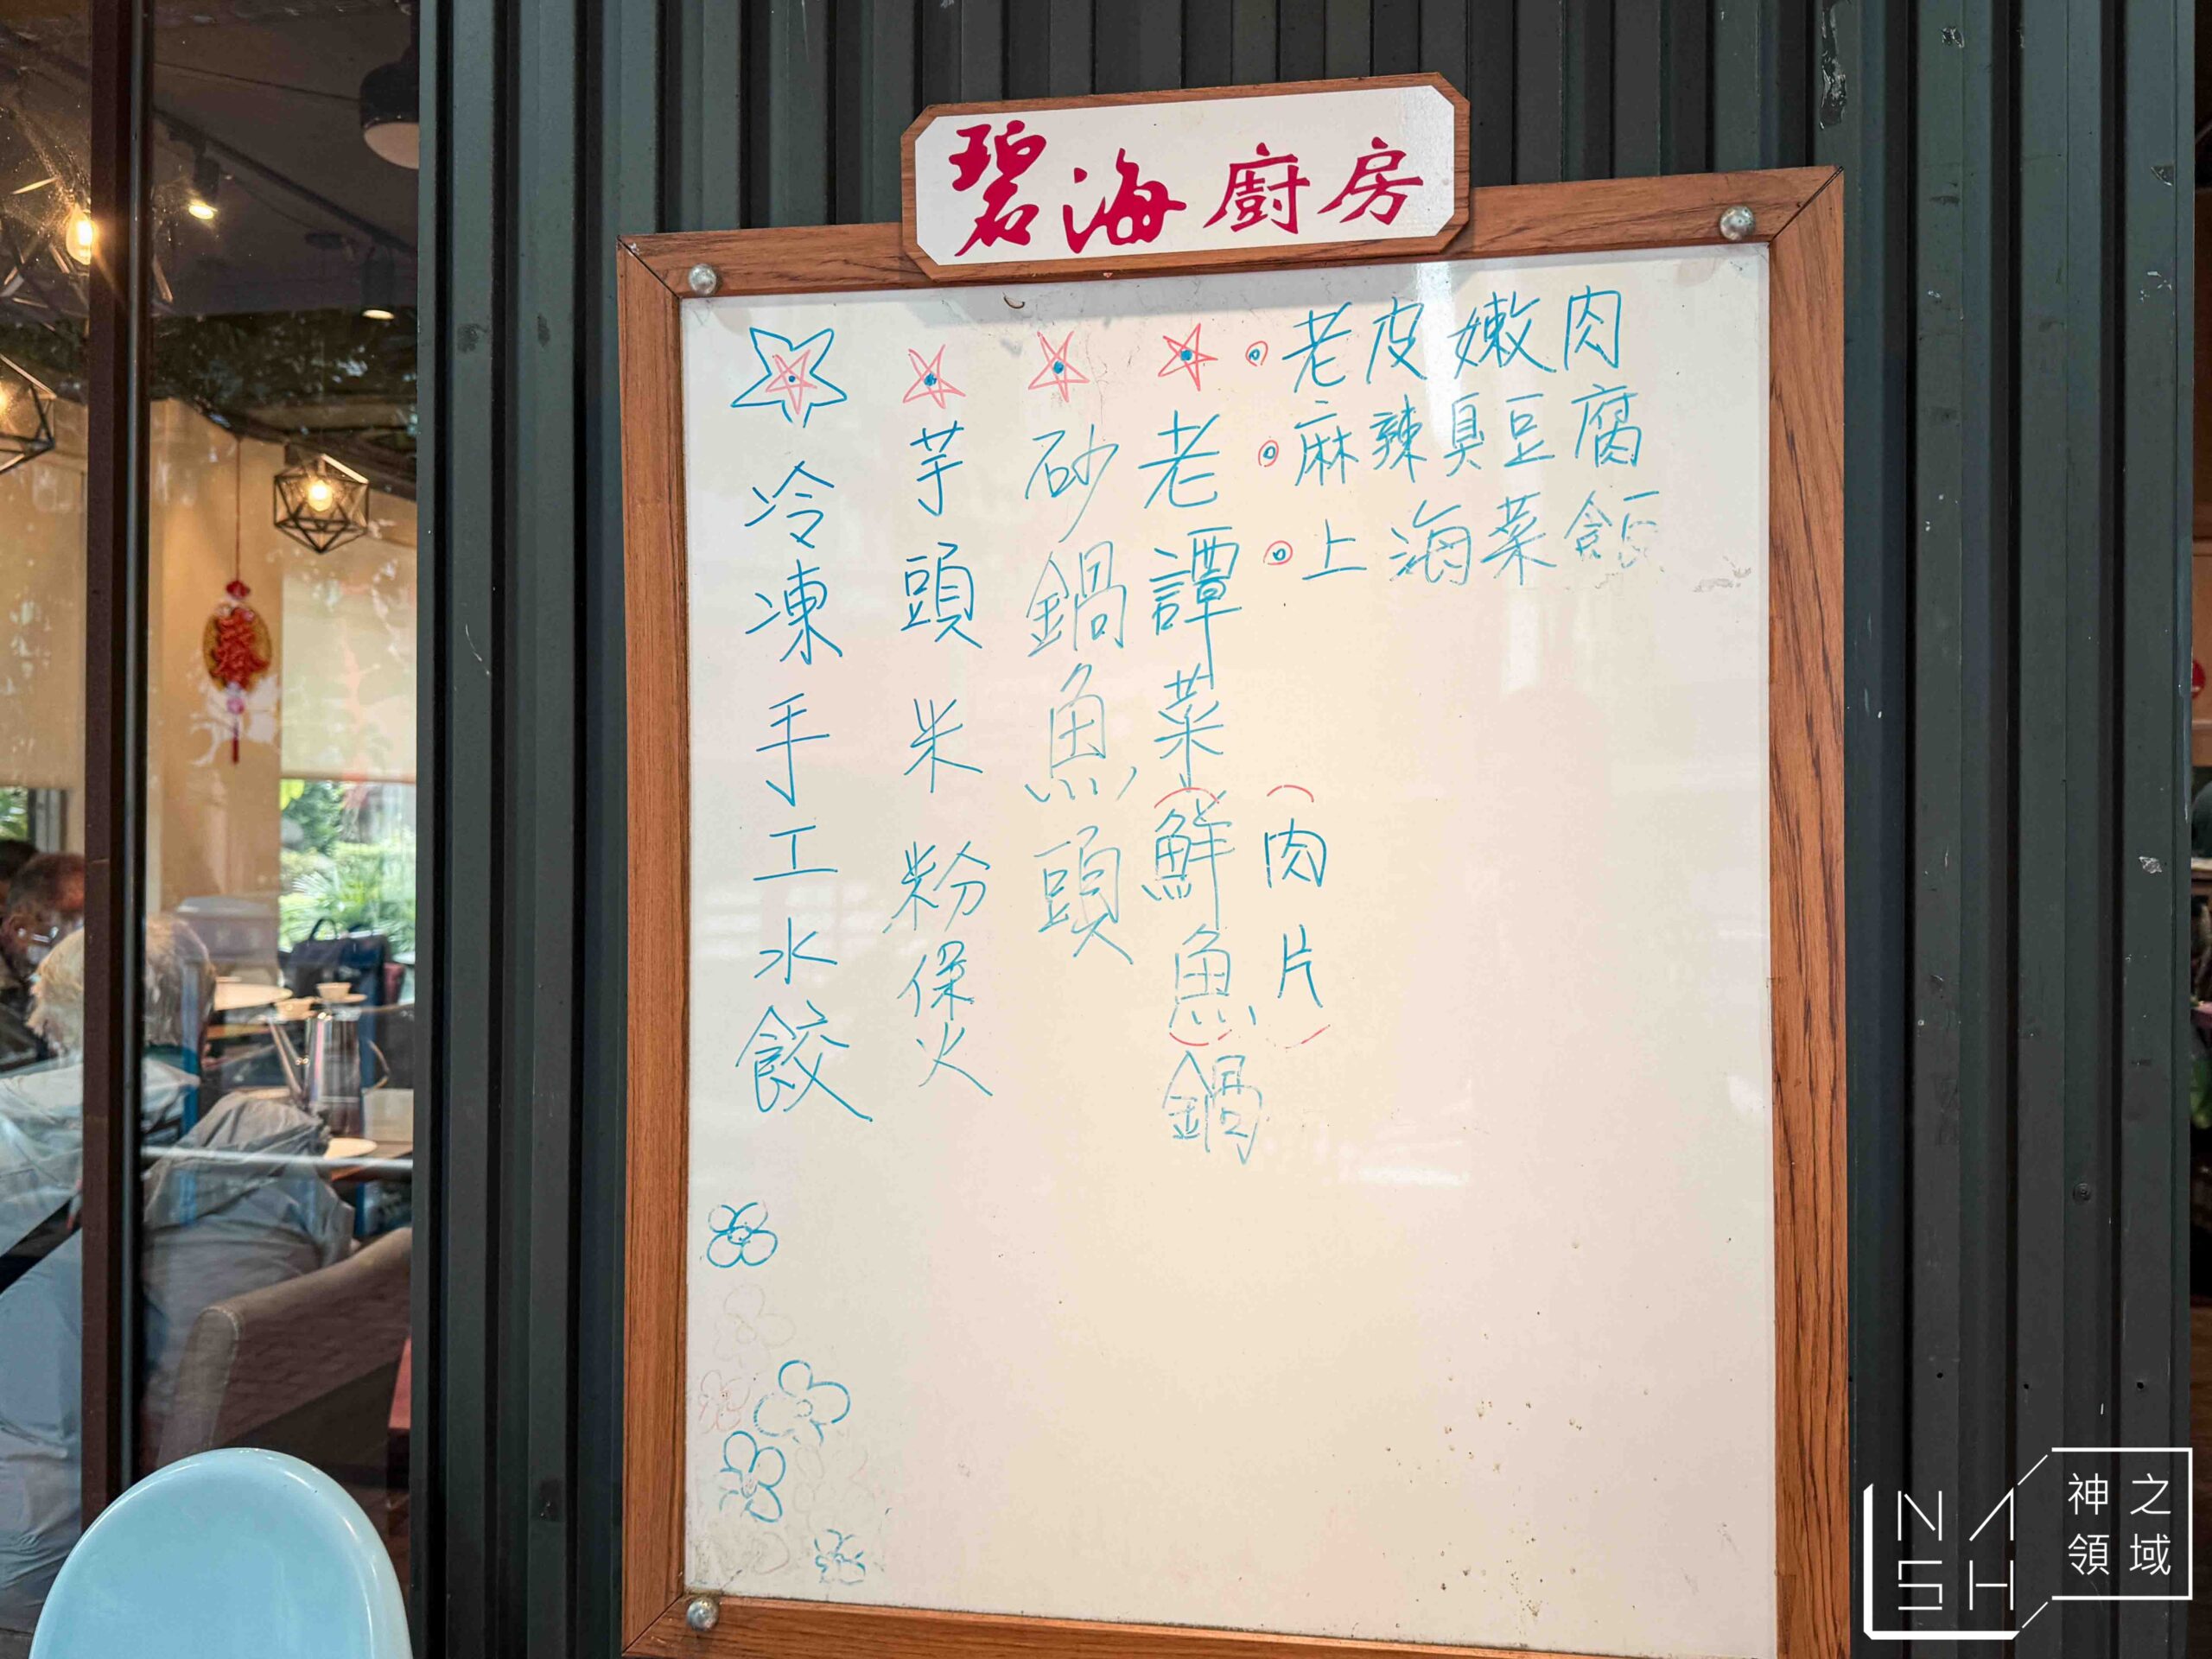 碧海廚房
老皮嫩肉
麻辣臭豆腐
上海菜飯
老譚菜(鮮魚)鍋
(肉片)
砂鍋魚頭
芋頭米粉煲
冷凍手工水餃
NASH
神之領域